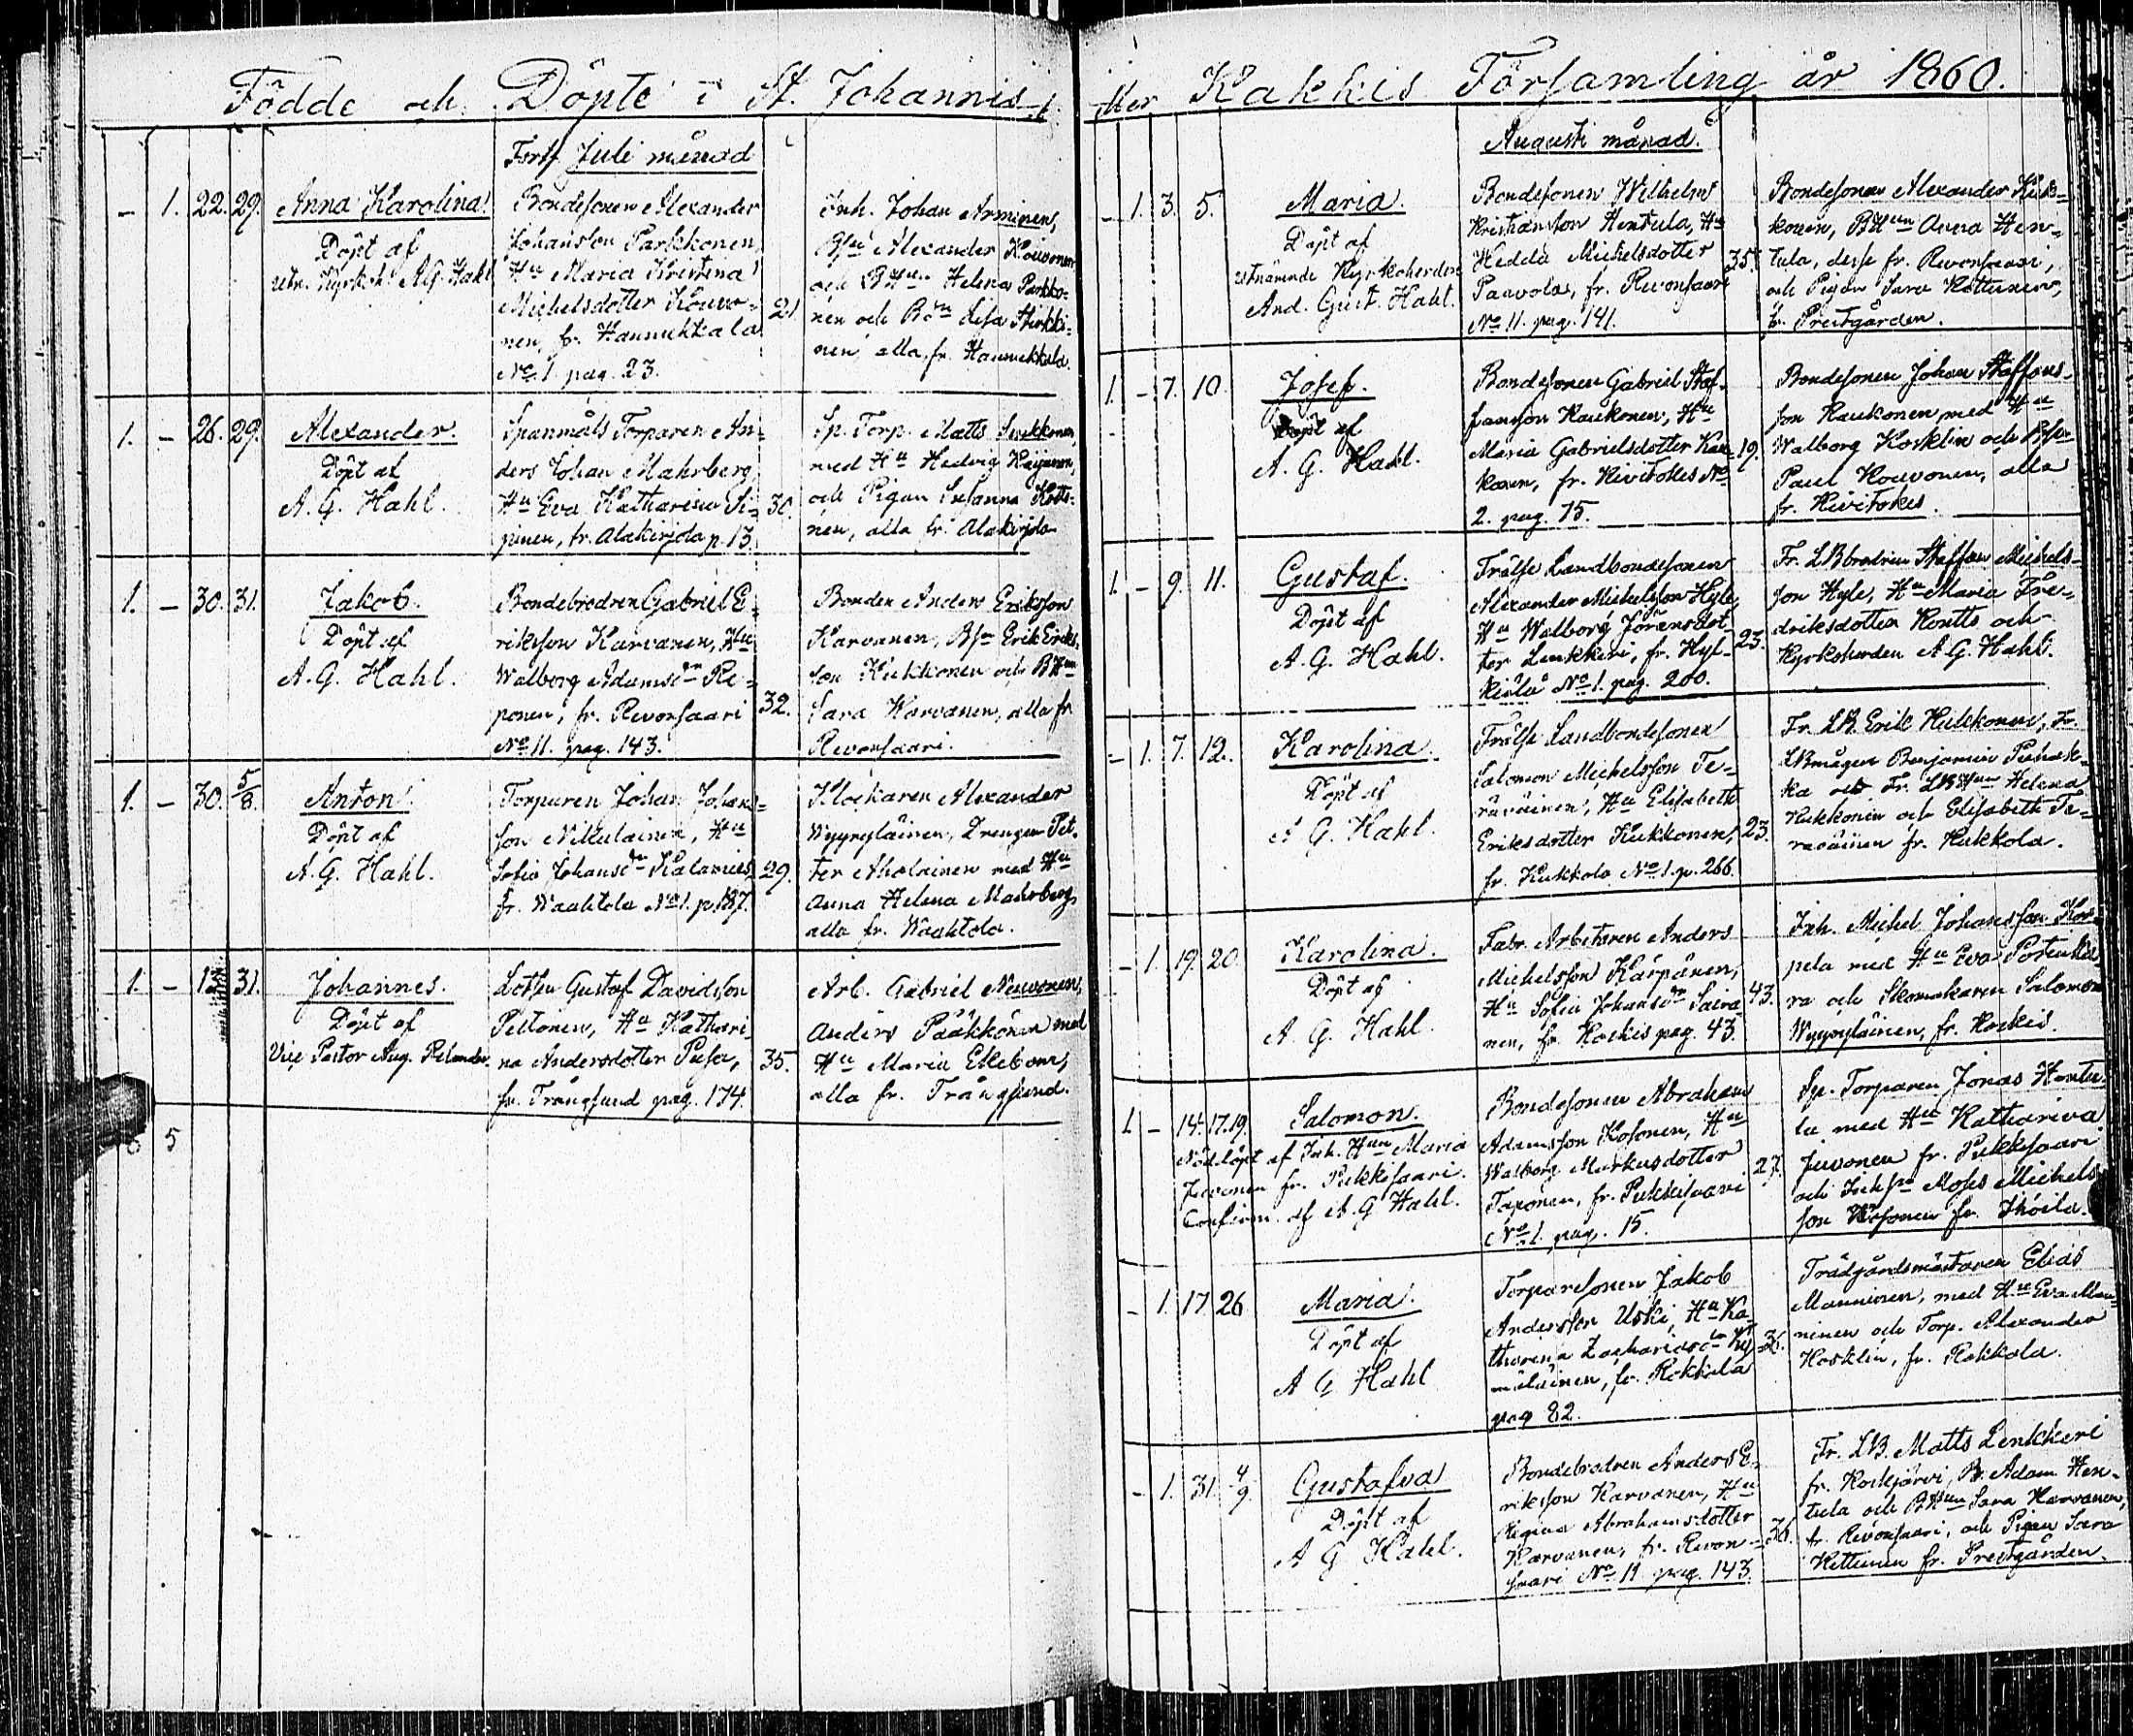 Födde och Döpte i St. Johannis
Forts. Juli månad
- 1. 22. 29. Anna Karolina.
Döpt af
Kyrkoh. A.G. Hahl
Bondesonen Alexander
Johansson Parkkonen,
Hu Maria Kristina
Michelsdotter Kouvo-
nen, fr. Hannukkala
No 1. pag. 23.
21.
Inh. Johan Arminen,
Alexander Kouvonen
och BHun Helena Parkko-
nen och Lisa
nen, alla fr. Hannukkala.
1. - 26. 29. Alexander.
Döpt af
A. G. Hahl.
Spanmåls Torparen An-
ders Johan Mahrberg,
Hu Eva Katharina Si-
pinen, fr. Alakirjola p. 13.
30.
Sp. Torp. Matts
med Hu Hedvig
och Pigan Susanna
nen, alla fr. Alakirjola
1. - 30. 31. Jakob.
Döpt af
A. G. Hahl.
Bondebrodren Gabriel E-
riksson Karvanen, Hu
Walborg Adamsdn Re-
ponen, fr. Revonsaari
No 11. pag. 143.
32.
Bonden Anders Eriksson
Karvanen, Erik Eriks-
son Kukkonen och BHun
Sara Karvanen, alla fr
Revonsaari.
1. - 30. 5/8. Anton.
Döpt af
A. G. Hahl.
Torparen Johan Johans-
son Nikulainen, Hu
Sofia Johansdn Kalamies
fr. Waahtola No 1. p. 187.
29.
Klockaren Alexander
Wyyryläinen, Drengen Pet-
ter Aholainen med Hu
Anna Helena Mahrberg,
alla fr. Waahtola.
1. - 31. Johannes.
Döpt af
Vice Pastor Aug. Relander.
Lotsen Gustaf Davidsson
Peltonen, Hu Kathari-
na Andersdotter Pusa,
fr. Trångsund pag. 174.
35.
Arb. Gabriel Neuvonen,
Anders Pääkkönen med
Hu Maria
alla fr. Trångsund.
5
Kakkis Församling år 1860.
Augusti månad.
- 1. 3. 5. Maria.
Döpt af
utnämnde Kyrkoherden
And. Gust. Hahl.
Bondesonen Wilhelm
Kristiansson Hentula, Hu
Hedda Michelsdotter
Paavola, fr. Revonsaari
No 11. pag. 141.
35.
Bondesonen Alexander Kuk-
konen, BHun Anna Hen-
tula, desse fr. Revonsaari,
och Pigan Sara Kettunen,
fr. Prestgården.
1. - 7. 10. Josef.
Döpt af
A. G. Hahl.
Bondesonen Gabriel Staf-
fansson Kaukonen, Hu
Maria Gabrielsdotter Kau-
konen, fr. Kiviskoes No
2. pag. 75.
19.
Bondesonen Johan Staffans-
son Kaukonen med Hu
Walborg Kosklin och
Paul Kouvonen, alla
fr.
1. - 9. 11. Gustaf.
Döpt af
A. G. Hahl.
Frälse Landbondesonen
Alexander Michelsson Hyle,
Hu Walborg Jöransdot-
ter Lenkkeri, fr. Hyl-
kiälä No 1. pag. 200.
23.
Fr. LBbrodren Staffan Michels-
son Hyle, Hu Maria Fre-
driksdotter Kontto och
Kyrkoherden A G. Hahl.
- 1. 7. 12. Karolina.
Döpt af
A G. Hahl.
Frälse Landbondesonen
Salomon Michelsson Te-
räväinen, Hu Elisabeth
Eriksdotter Kukkonen,
fr. Kukkola No 1. p. 266.
23.
Fr. LB. Erik Kukkonen, Fr.
LBmågen Benjamin Puhak-
ka och Fr. Helena
Kukkonen och Elisabeth Te-
räväinen fr. Kukkola.
- 1. 19. 20. Karolina.
Döpt af
A. G. Hahl.
Fabr. Arbetaren Anders
Michelsson Kärpänen,
Hu Sofia Johansdn
nen, fr. Kaskis pag. 43.
43.
Inh. Michel Johansson Kor-
pela med Hu Eva
ra och Skomakaren Salomon
Wyyryläinen, fr.
1. - 14. 17. 19. Salomon.
Nöddöpt af Inh. Hun Maria
Juvonen fr. Pukkisaari.
Confirm. af A. G Hahl.
Bondesonen Abraham
Adamsson Kosonen, Hu
Walborg Markusdotter
Taponen, fr. Pukkisaari
No 1. pag. 15.
27.
Sp. Torparen Jonas Hentu-
la med Hu Katharina
Juvonen fr. Pukkisaari
och Moses Michels-
son fr.
- 1. 17. 26 Maria.
Döpt af
A G Hahl
Torparesonen Jakob
Andersson Uski, Hu Ka-
tharina Zachariasdn
mäläinen, fr. Rokkala
pag 82.
Trädgårdsmästaren Elias
Manninen, med Hu Eva Man-
ninen och Torp. Alexander
Kosklin, fr. Rokkala.
- 1. 31. 4/9. Gustafva
Döpt af
A G Hahl.
Bondebrodren Anders E-
riksson Karvanen, Hu
Regina Abrahamsdotter
Karvanen, fr. Revon-
saari No 11 pag. 143.
36.
Fr. LB. Matts Lenkkeri
fr. Koskijärvi, B. Adam Hen-
tula och BHun Sara Karvanen,
fr. Revonsaari, och Pigan Sara
Kettunen fr. Prestgården.